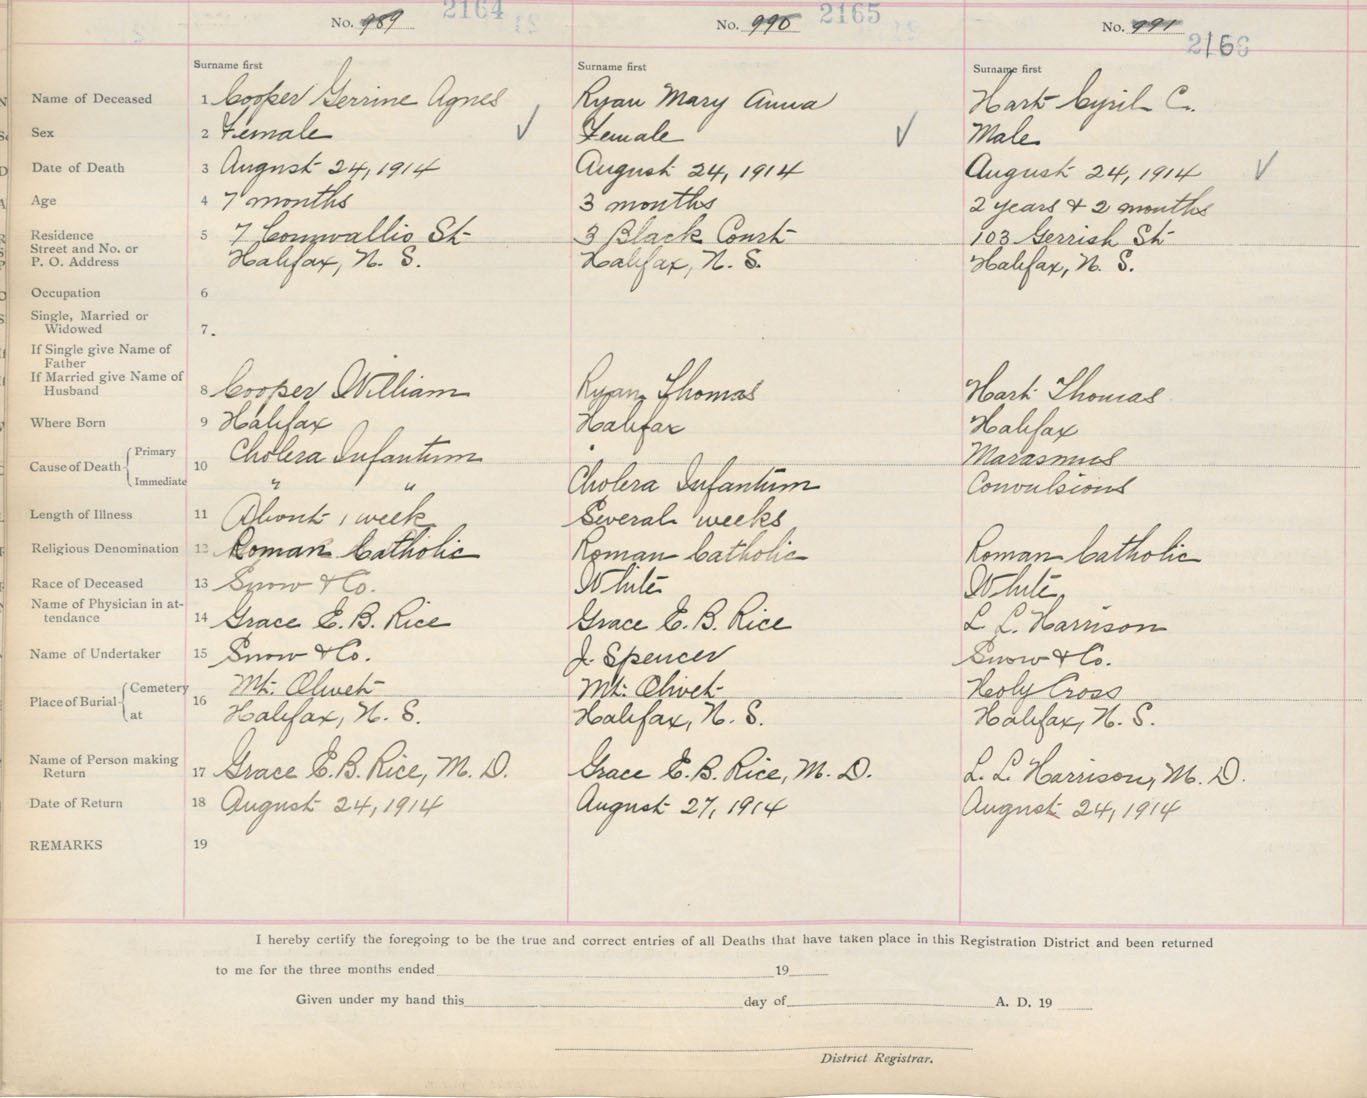 No. 989 2164 No. 990 2165 No. 991 2166
Surname first Surname first Surname first
Name of Deceased 1 Cooper Gerrine Agnes Ryan Mary Anna Hart Cyril C.
Sex 2 Female Female Male
Date of Death 3 August 24, 1914 August 24, 1914 August 24, 1914
Age 4 7 months 3 months 2 years & 2 months
Residence 5 7 Cornwallis St 3 Black Court 103 Gerrish St
Street and No. or
P. O. Address Halifax, N. S. Halifax, N. S. Halifax, N. S.
Occupation 6
Single, Married or
Widowed 7.
If Single give Name of
Father
If Married give Name of
Husband 8 Cooper William Ryan Thomas Hart Thomas
Where Born 9 Halifax Halifax Halifax
Cause of Death Primary 10 Cholera Infantum Marasmus
Immediate " " Cholera Infantum Convulsions
Length of Illness 11 About 1 week Several weeks
Religious Denomination 12 Roman Catholic Roman Catholic Roman Catholic
Race of Deceased 13 Snow & Co. White White
Name of Physician in at-
tendance 14 Grace E. B. Rice Grace E. B. Rice L. L. Harrison
Name of Undertaker 15 Snow & Co. J. Spencer Snow & Co.
Place of Burial Cemetery 16 Mt. Olivet Mt. Olivet Holy Cross
at Halifax, N. S. Halifax, N. S. Halifax, N. S.
Name of Person making
Return 17 Grace E. B. Rice, M. D. Grace E. B. Rice, M. D. L. L. Harrison, M. D.
Date of Return 18 August 24, 1914 August 27, 1914 August 24, 1914
REMARKS 19
I hereby certify the foregoing to be the true and correct entries of all Deaths that have taken place in this Registration District and been returned
to me for the three months ended 19
Given under my hand this day of A. D. 19
District Registrar.